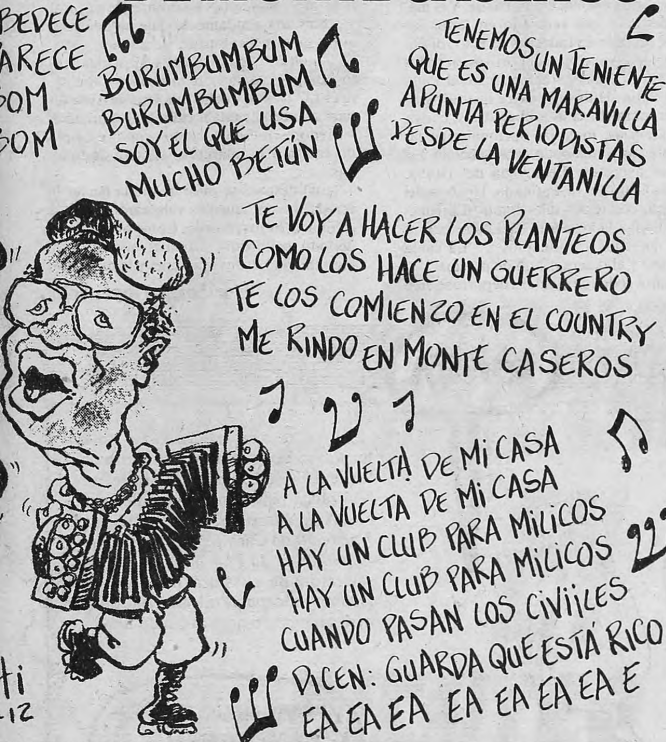 BEDECE
ARECE
BOM
BOM
BURUMBUMBUM
BURUMBUMBUM
SOY EL QUE USA
MUCHO BETÚN
TENEMOS UN TENIENTE
QUE ES UNA MARAVILLA
APUNTA PERIODISTAS
DESDE LA VENTANILLA
TE VOY A HACER LOS PLANTEOS
COMO LOS HACE UN GUERRERO
TE LOS COMIENZO EN EL COUNTRY
ME RINDO EN MONTE CASEROS
A LA VUELTA DE MI CASA
A LA VUELTA DE MI CASA
HAY UN CLUB PARA MILICOS
HAY UN CLUB PARA MILICOS
CUANDO PASAN LOS CIVIILES
DICEN: GUARDA QUE ESTÁ RICO
EA EA EA EA EA EA EA E
ti
12